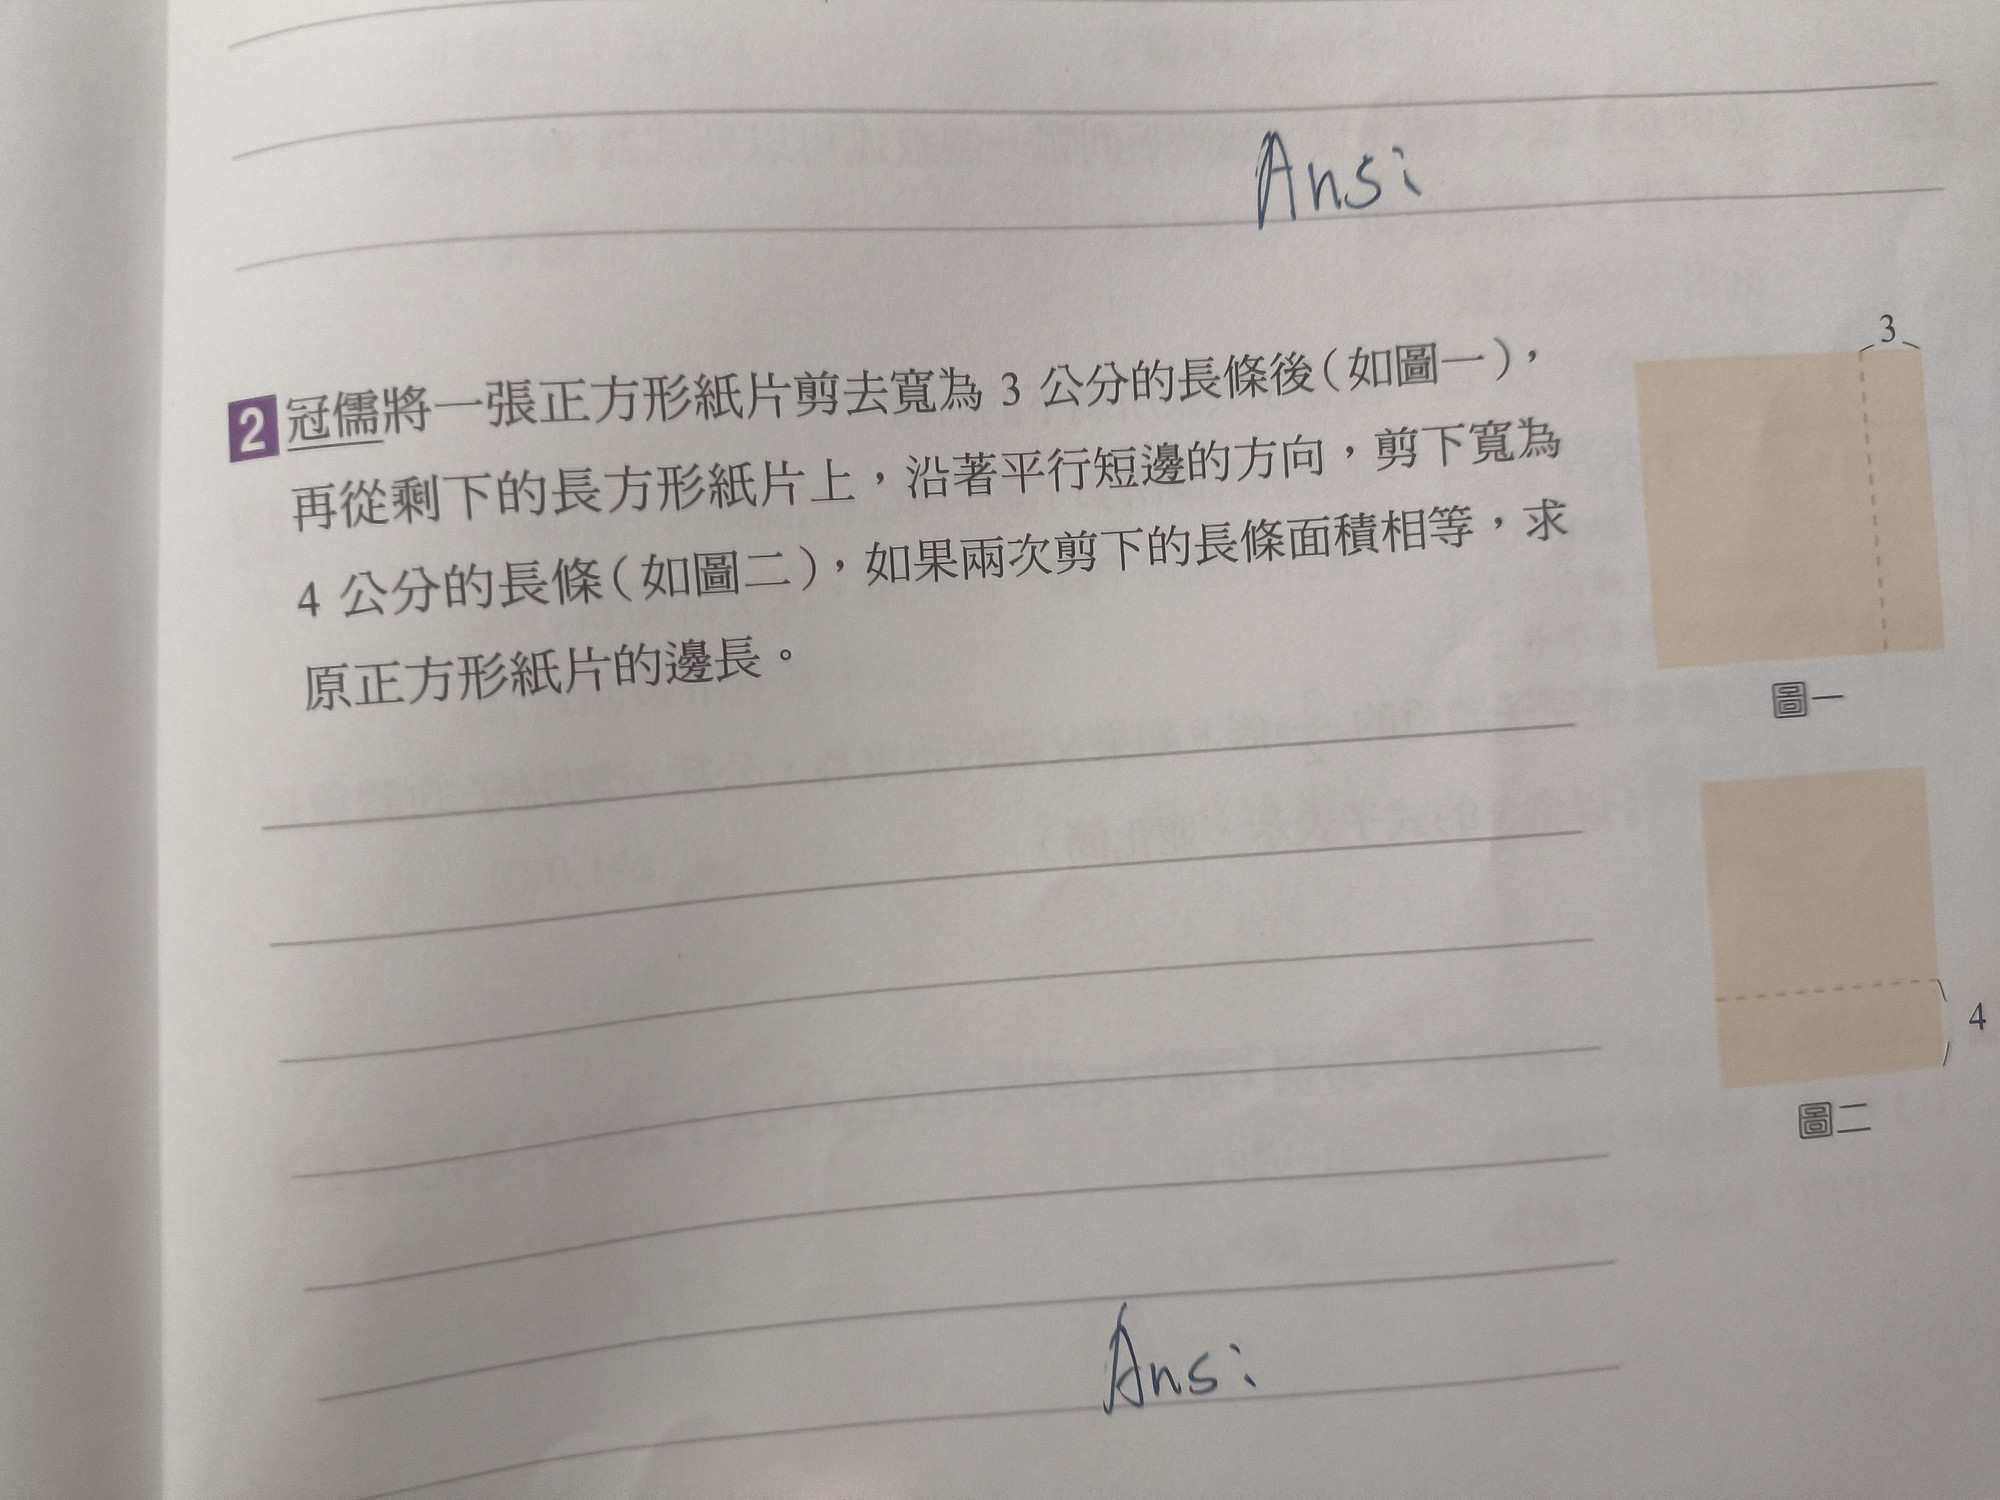 Ans:
2 冠儒將一張正方形紙片剪去寬為 3 公分的長條後(如圖一)，
再從剩下的長方形紙片上，沿著平行短邊的方向，剪下寬為
4 公分的長條(如圖二)，如果兩次剪下的長條面積相等，求
原正方形紙片的邊長。
3
圖一
4
圖二
Ans: